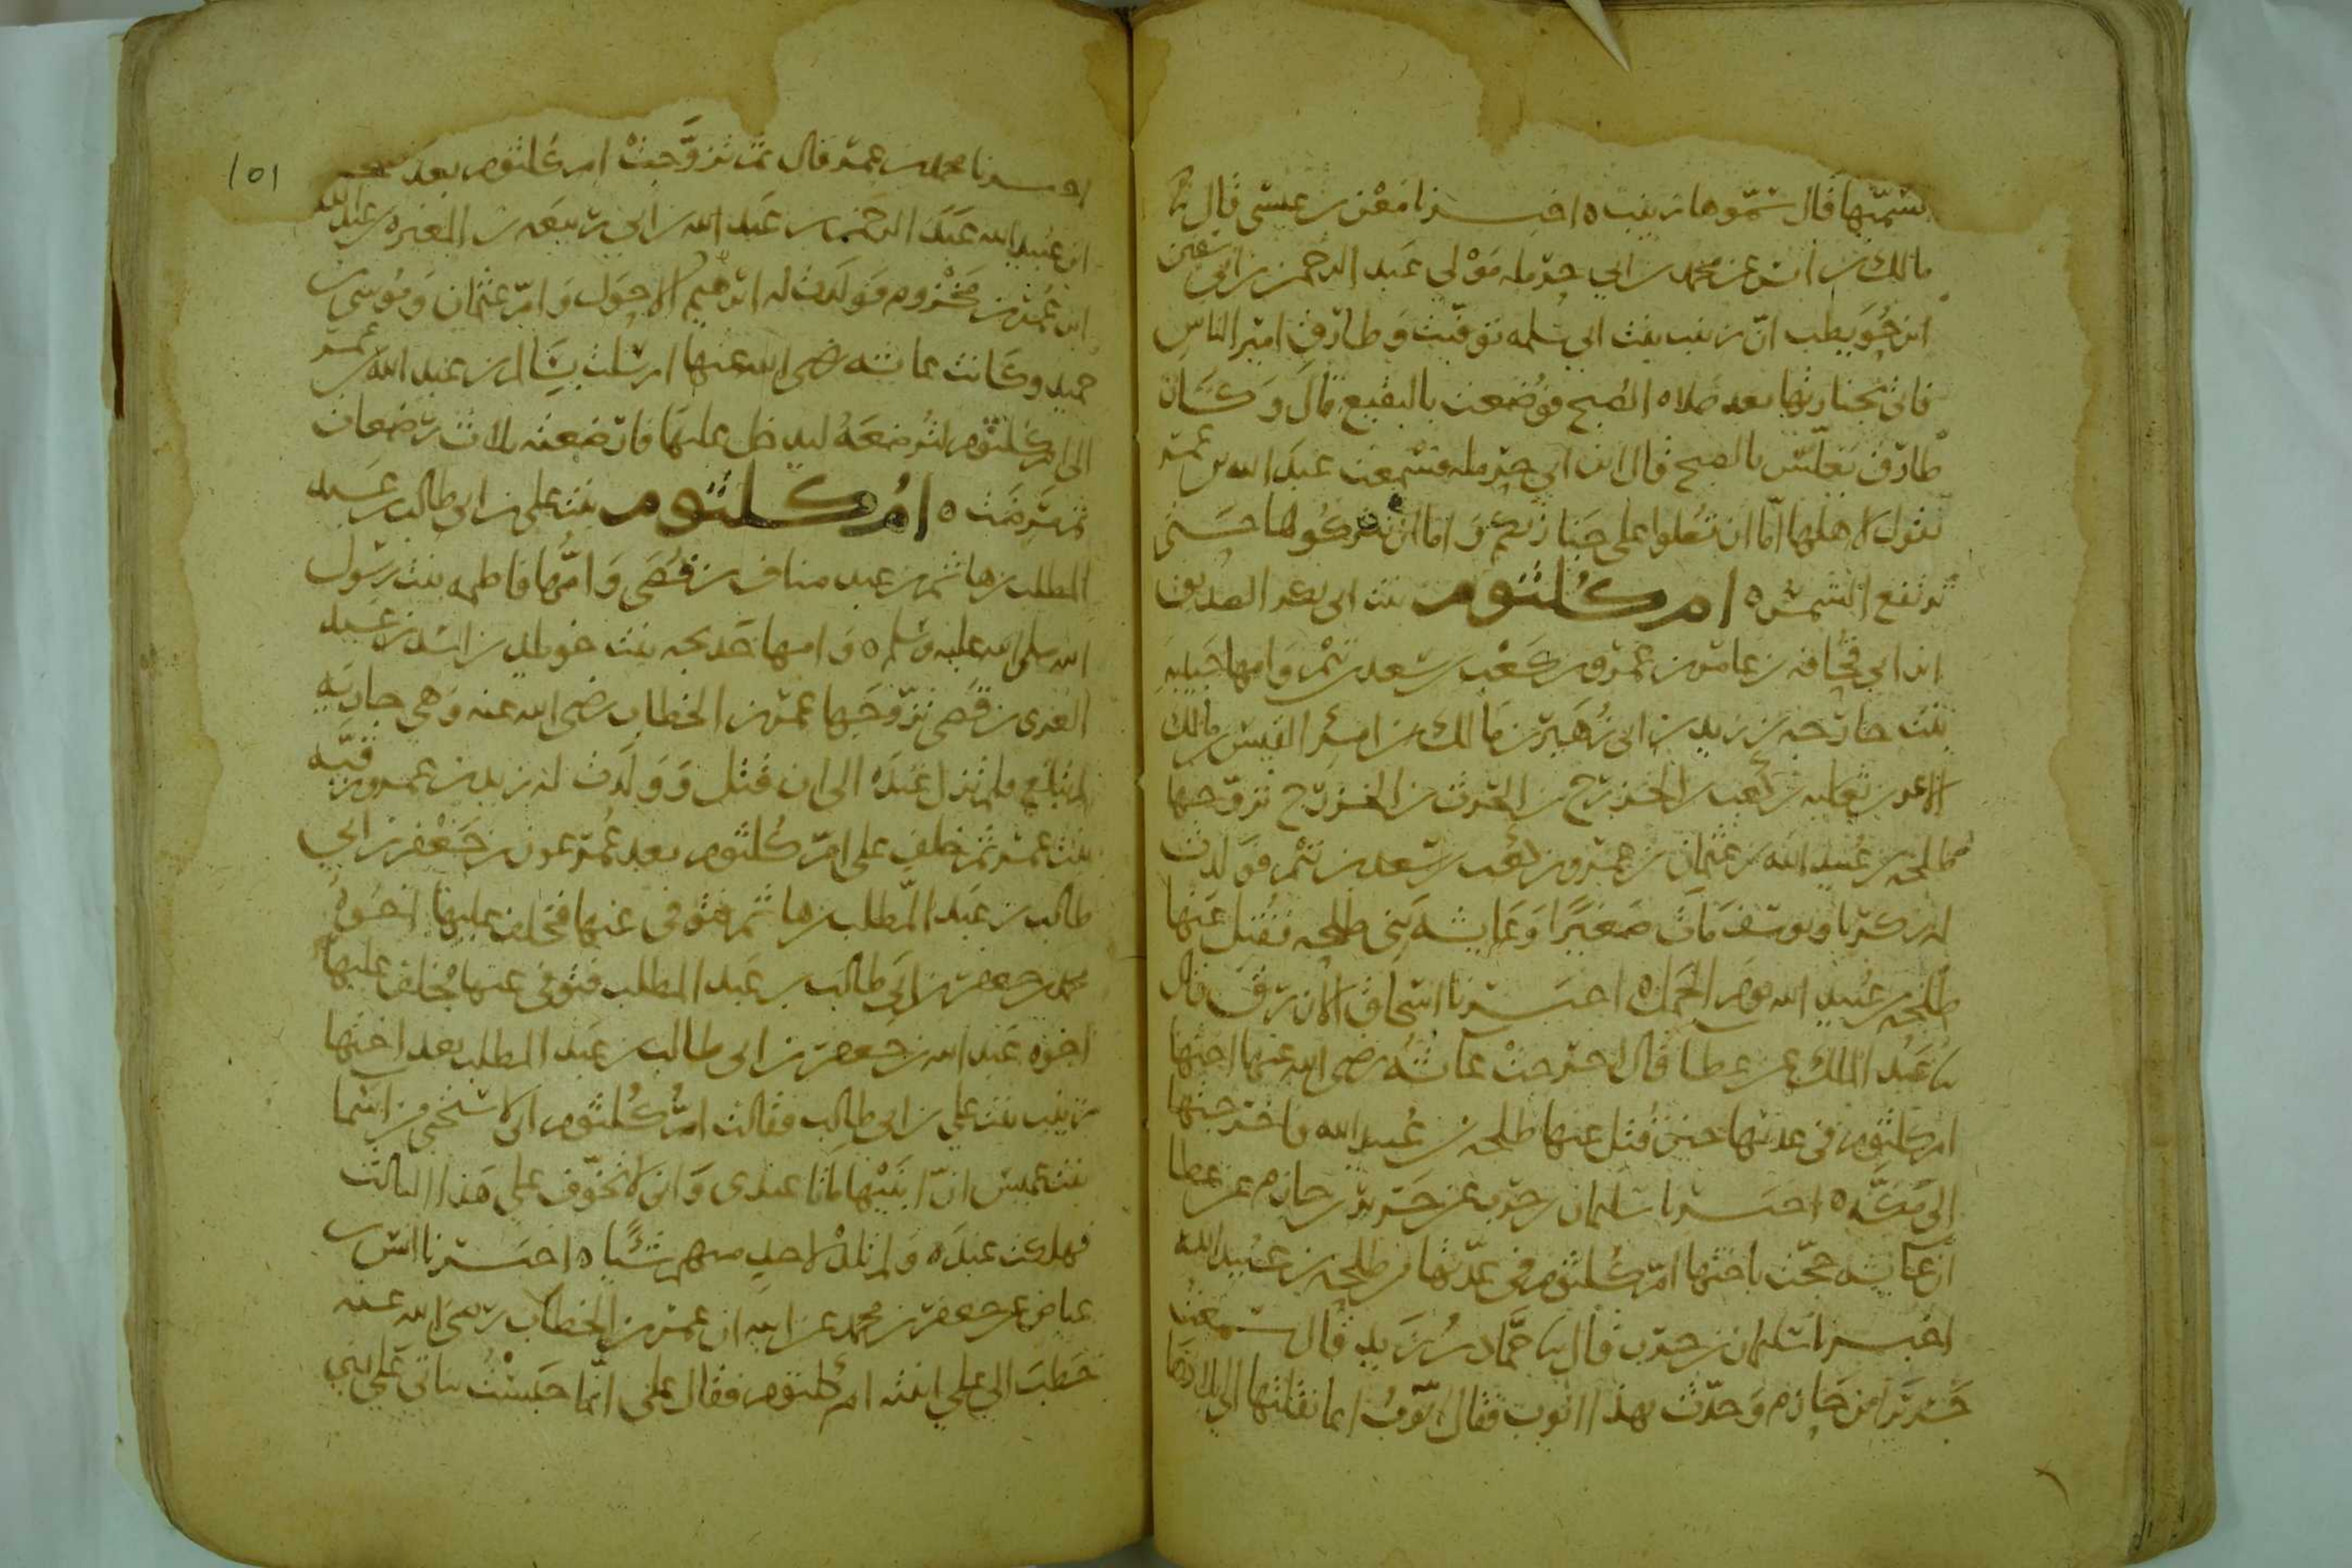 نسميها قال سموها زينب ٥ اخبرنا معن بن عيسى قال نا
مالك بن انس عن محمد بن ابي حرمله مولى عبد الرحمن بن ابي سفين
ابن حويطب ان زينب بنت ابي سلمه توفيت وطارق امير الناس
فاتى بجنازتها بعد صلاه الصبح فوضعت بالبقيع قال وكان
طارق يغلس بالصبح قال ابن ابي حرمله فسمعت عبد الله بن عمر
يقول لاهلها اما ان تصلوا على جنازتكم واما ان تتركوها حتى
ترتفع الشمس ٥ ام كلثوم بنت ابي بكر الصديق
ابن ابي قحافه بن عامر بن عمرو بن كعب بن سعد بن تيم وامها حبيبه
بنت خارجه بن زيد بن ابي زهير بن مالك بن امرئ القيس بن مالك
الاغر بن ثعلبه بن كعب بن الخزرج بن الحرث بن الخزرج تزوجها
طلحه بن عبيد الله بن عثمان بن عمرو بن كعب بن سعد بن تيم فولدت
له زكريا ويوسف مات صغيرا وعايشه بني طلحه فقتل عنها
طلحه بن عبيد الله يوم الجمل ٥ اخبرنا اسحاق الازرق قال
نا عبد الملك عن عطا قال اخرجت عائشه رضي الله عنها اختها
ام كلثوم في عدتها حين قتل عنها طلحه بن عبيد الله فاخرجتها
الى مكه ٥ اخبرنا سليمان بن حرب عن جرير بن حازم عن عطا
ان عايشه حجت باختها ام كلثوم في عدتها من طلحه بن عبيد الله
اخبرنا سليمان بن حرب قال نا حماد بن زيد قال سمعت
جرير بن حازم وحدث بهذا ايوب فقال ايوب انما نقلتها الى بلادها
١٥١
اخبرنا محمد بن عمر قال ثم تزوجت ام كلثوم بعد طلحه
ابن عبيد الله عبد الرحمن بن عبد الله بن ابي ربيعه بن المغيره بن عبد الله
ابن عمر بن مخزوم فولدت له ابرهيم الاحول وام عثمان وموسى بن
حميد وكانت عائشه رضي الله عنها ارسلت بسالم بن عبد الله بن عمر
الى ام كلثوم لترضعه ليدخل عليها فارضعته ثلاث رضعات
ثم مرضت ٥ ام كلثوم بنت علي بن ابي طالب بن عبد
المطلب بن هاشم بن عبد مناف بن قصي وامها فاطمه بنت رسول
الله صلى الله عليه وسلم ٥ وامها خديجه بنت خويلد بن اسد بن عبد
العزى بن قصي تزوجها عمر بن الخطاب رضي الله عنه وهي جاريه
لم تبلغ فلم تزل عنده الى ان قتل وولدت له زيد بن عمر ورقيه
بنت عمر ثم خلف على ام كلثوم بعد عمر عون بن جعفر بن ابي
طالب بن عبد المطلب بن هاشم فتوفي عنها فخلف عليها اخوه
محمد بن جعفر بن ابي طالب بن عبد المطلب فتوفي عنها فخلف عليها
اخوه عبد الله بن جعفر بن ابي طالب بن عبد المطلب بعد اختها
زينب بنت علي بن ابي طالب فقالت ام كلثوم اني لاستحيي من اسما
بنت عميس ان ابنيها ماتا عندي واني لاتخوف على هذا الثالث
فهلكت عنده ولم تلد لاحد منهم شيا ٥ اخبرنا انس بن
عياض عن جعفر بن محمد عن ابيه ان عمر بن الخطاب رضي الله عنه
خطب الى علي ابنته ام كلثوم فقال علي انما حبست بناتي على بني